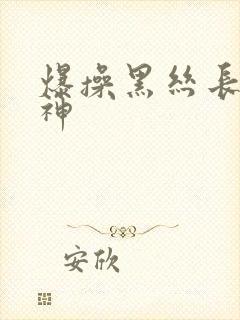 爆操黑絲長
神
安欣